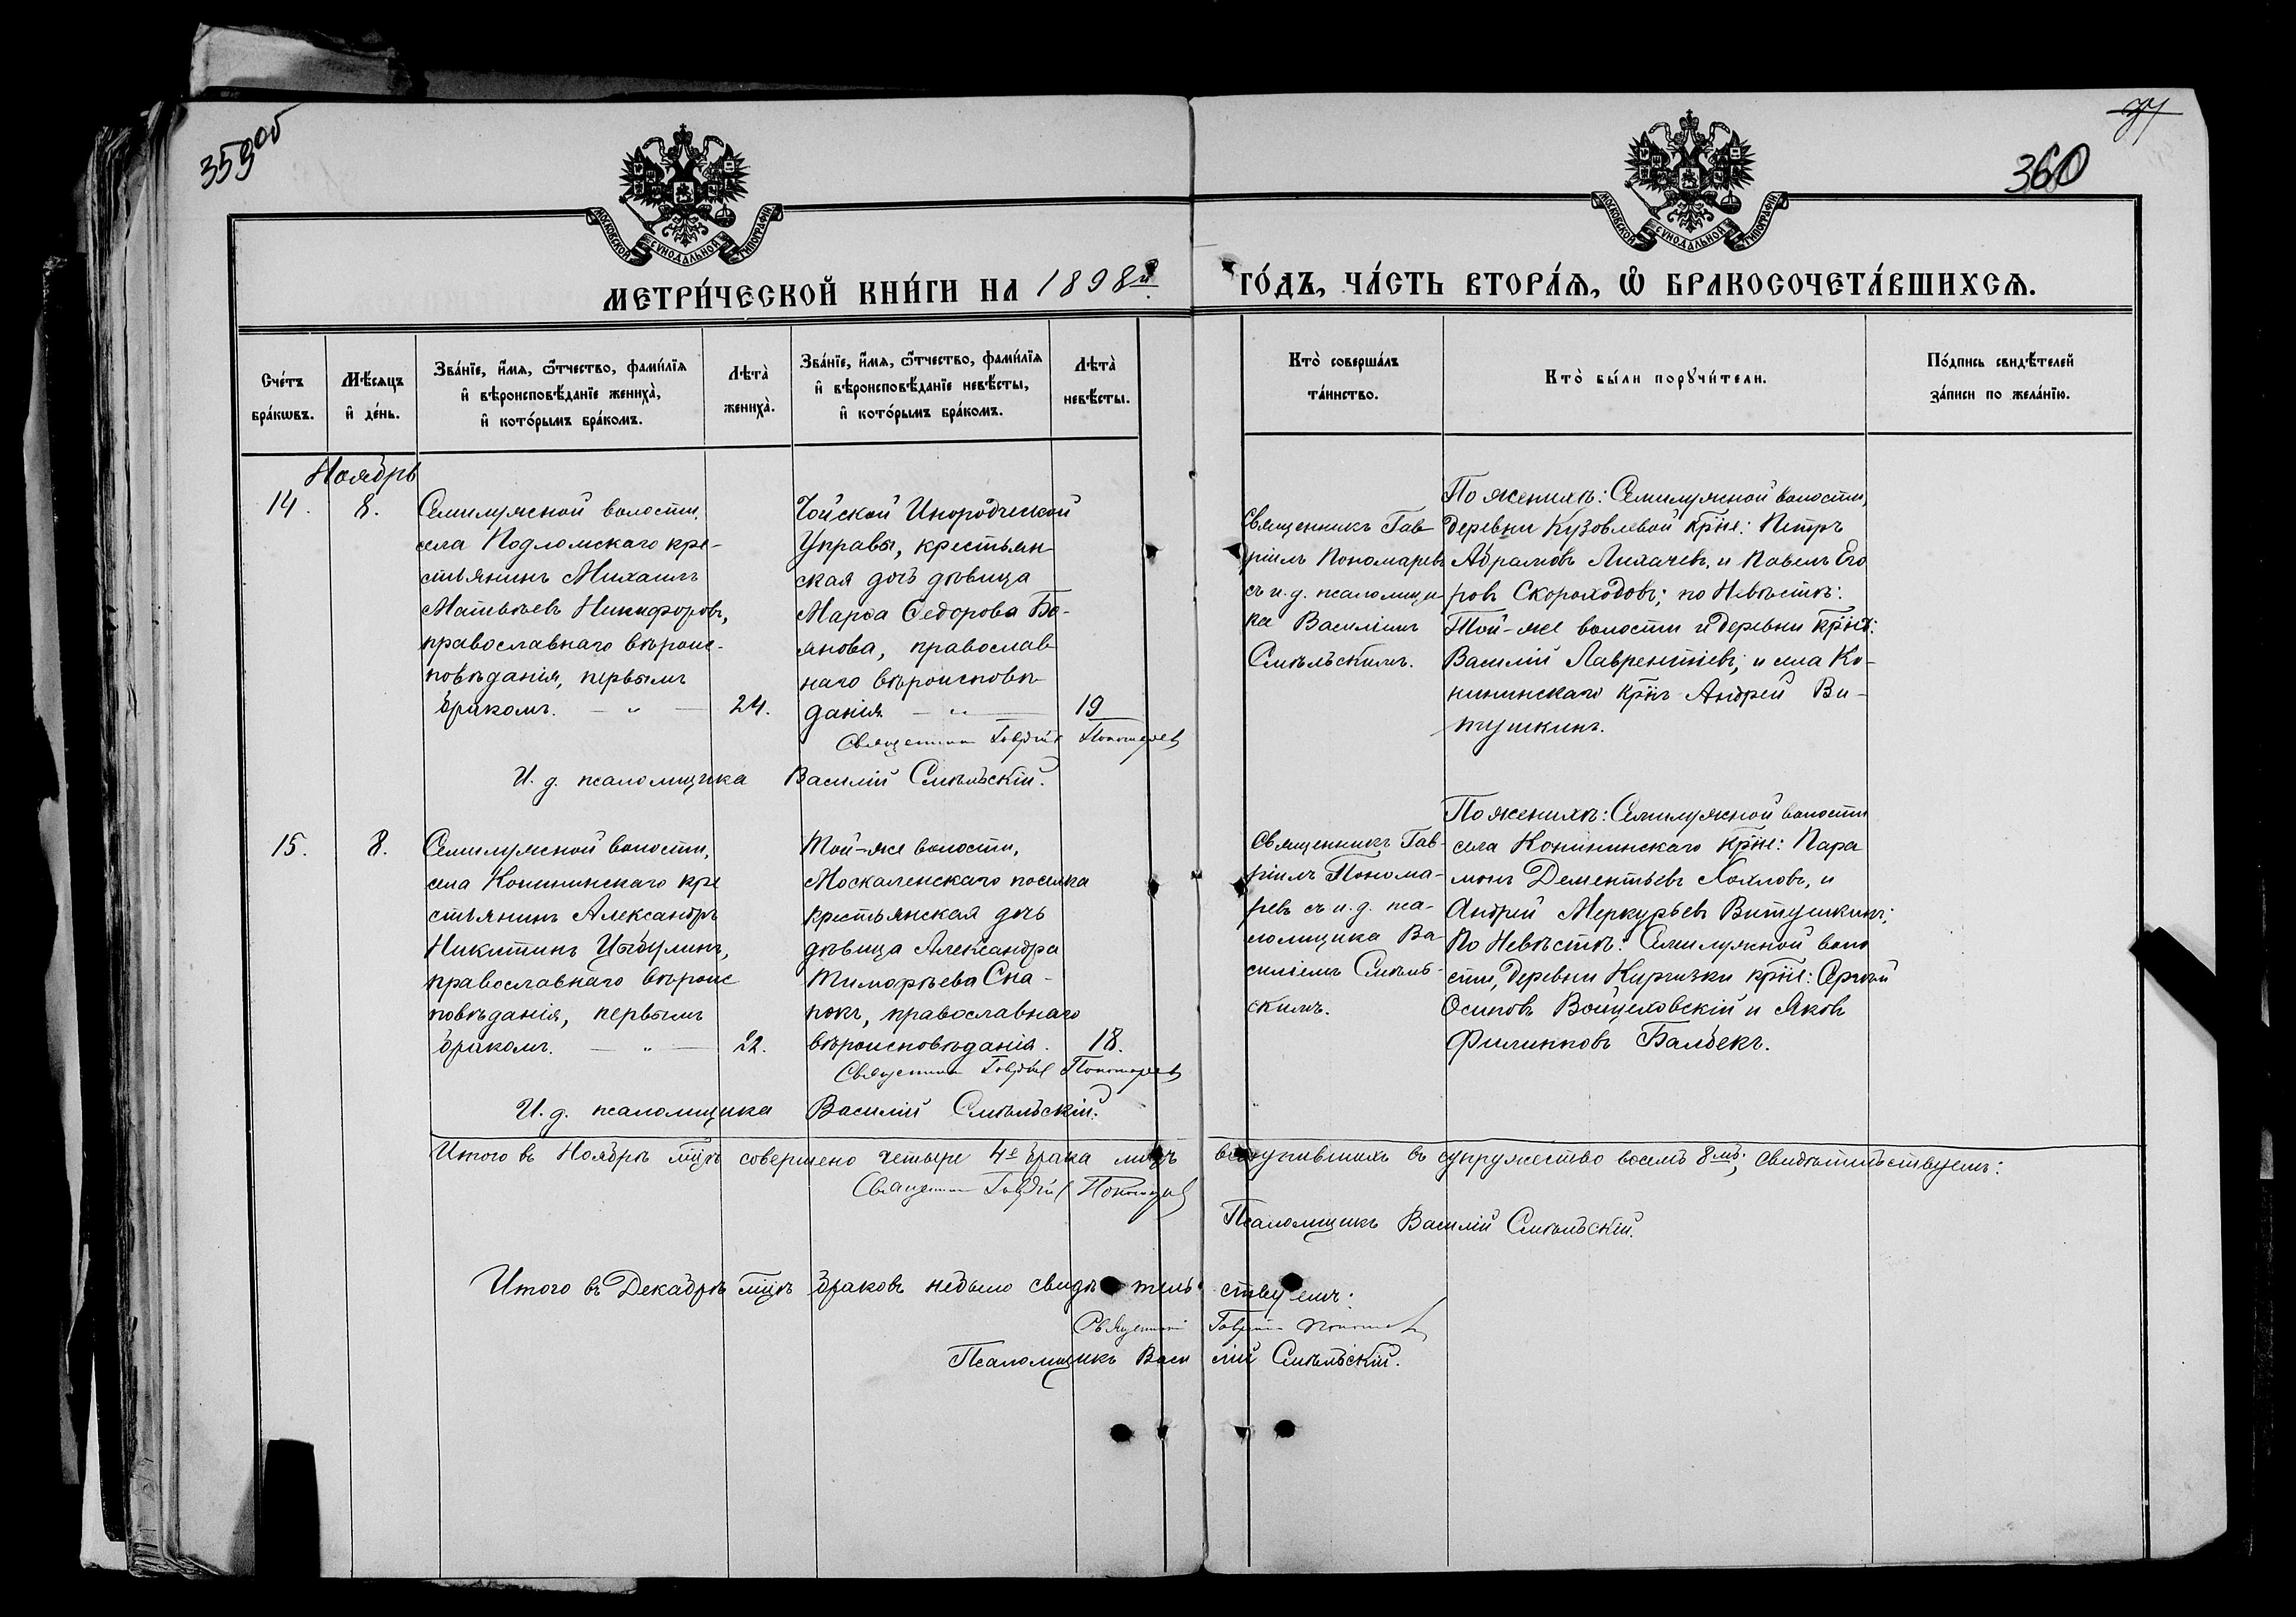 359об
360
МОСКОВСКОЙ СѴНОДАЛЬНОЙ ТИПОГРАФІИ
МОСКОВСКОЙ СѴНОДАЛЬНОЙ ТИПОГРАФІИ
МЕТРИ́ЧЕСКОЙ КНИ́ГИ НА 1898й ГО́ДЪ, ЧА́СТЬ ВТОРА́Ѧ, Ѡ҆ БРАКОСОЧЕТА́ВШИХСѦ.
Сче́тъ бра́кѡвъ.
Мѣ́сѧцъ и҆ де́нь.
Зва́нїе, и҆́мѧ, ѻ҆́тчество, фами́лїѧ
и҆ вѣроисповѣ́данїе жениха̀,
и҆ кото́рымъ бра́комъ.
Лѣта̀ жениха̀.
Зва́нїе, и҆́мѧ, ѻ҆́тчество, фами́лїѧ
и҆ вѣроисповѣ́данїе невѣ́сты,
и҆ кото́рымъ бра́комъ.
Лѣта̀ невѣ́сты.
Кто̀ соверша́лъ
та́инство.
Кто̀ бы́ли порꙋчи́тели.
По́дпись свидѣ́телей
за́писи по жела́нїю.
Ноябрь
14.
8.
Семилужной волости,
села Подломскаго кре-
стьянинъ Михаилъ
Матвѣевъ Никифоровъ,
православнаго вѣроис-
повѣданія, первымъ
бракомъ. — „ —
24.
Чойской Инородческой
Управы, крестьян
ская дочь дѣвица
Марѳа Ѳедорова Бо-
янова, православ
наго вѣроисповѣ
данія — „ —
19
Священникъ Гав
ріилъ Пономаревъ
съ и.д. псаломщи
ка Василіемъ
Смѣльскимъ.
По женихѣ: Семилужной волости,
деревни Кузовлевой крⷭ҇не: Петръ
Абрамовъ Лихачевъ, и Павелъ Его
ровъ Скороходовъ; по Невѣстѣ:
Той-же волости и деревни крⷭ҇нъ:
Василій Лаврентіевъ; и села Ко-
нининскаго крнъ Андрей Ви-
тушкинъ.
Священникъ Гавріилъ Пономаревъ
И. д. псаломщика Василій Смѣльскій.
15.
8.
Семилужной волости,
села Конининскаго кре
стьянинъ Александръ
Никитинъ Цыбулинъ,
православнаго вѣроис
повѣданія, первымъ
бракомъ. — „ —
22.
Той-же волости,
Москаленскаго поселка
крестьянская дочь
дѣвица Александра
Тимофѣева Сна-
покъ, православнаго
вѣроисповѣданія.
18.
Священникъ Гав-
ріилъ Понома-
ревъ съ и.д. пса-
ломщика Ва-
силіемъ Смѣль-
скимъ.
По женихѣ: Семилужной волости
села Конининскаго крне: Пара
монъ Дементьевъ Хохловъ, и
Андрей Меркурьевъ Витушкинъ;
По Невѣстѣ: Семилужной воло
сти, деревни Киргизки крне: Сергѣй
Осиповъ Войцеховскій и Яковъ
Филипповъ Балбекъ.
Священникъ Гавріилъ Пономаревъ
И. д. псаломщика Василій Смѣльскій.
Итого въ Ноябрѣ мцѣ совершено четыре 4е брака лицъ вступившихъ въ супружество восемь 8мь; свидѣтельствуемъ:
Священникъ Гавріилъ Пономаревъ
Псаломщикъ Василій Смѣльскій.
Итого въ Декабрѣ мцѣ браковъ небыло свидѣтельствуемъ:
Священникъ Гавріилъ Пономаревъ
Псаломщикъ Василій Смѣльскій.